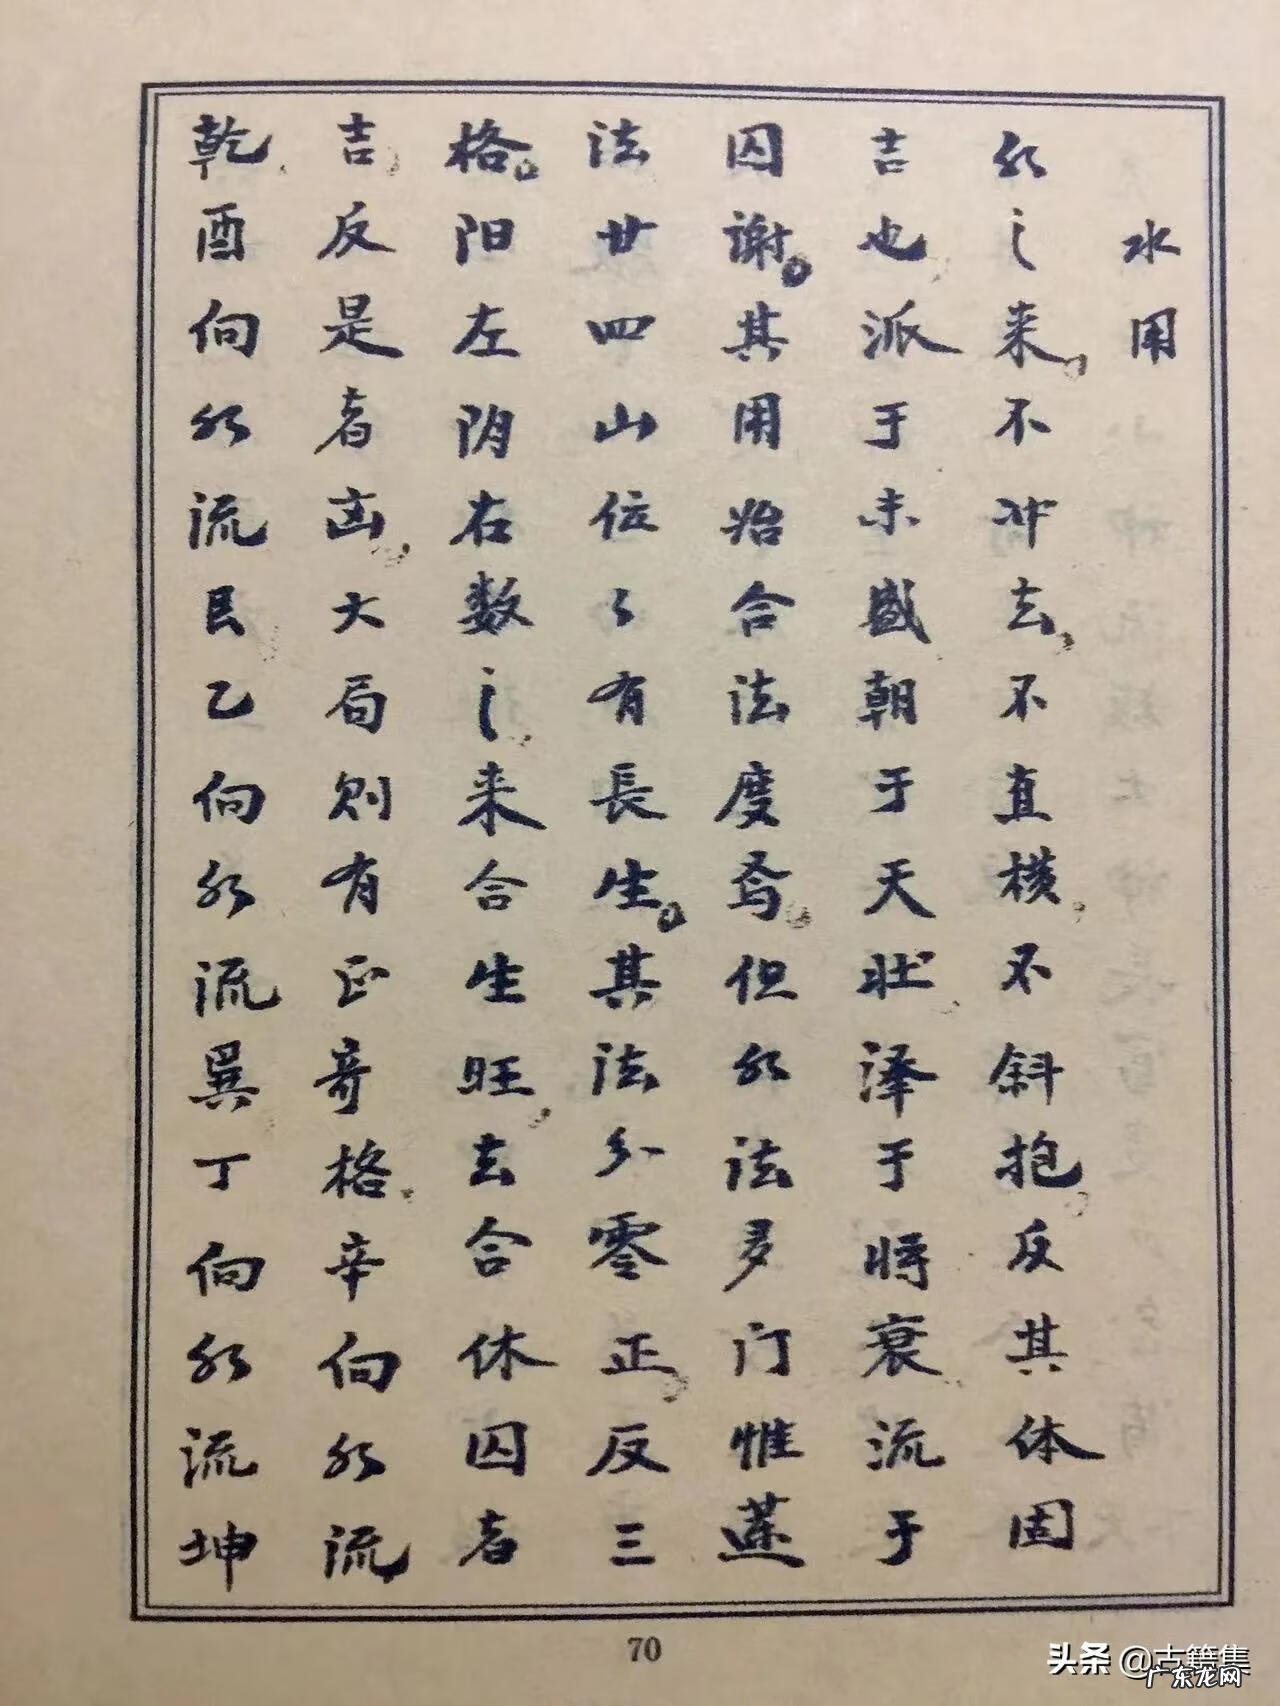 水用
水之来。不冲去。不直横。不斜抱。反其体固
吉也。派于未盛朝于天壮。泽于将衰。流于
囚谢。其用始合法度焉。但水法多门惟
法廿四山位々有長生。其法分零正。反三
格。阳左阴右数之。来合生旺。去合休囚者
吉。反是者凶。大局则有正奇格。辛向水流
乾。酉向水流艮。乙向水流巽。丁向水流坤
70
头条 @古籍集
广东龙网